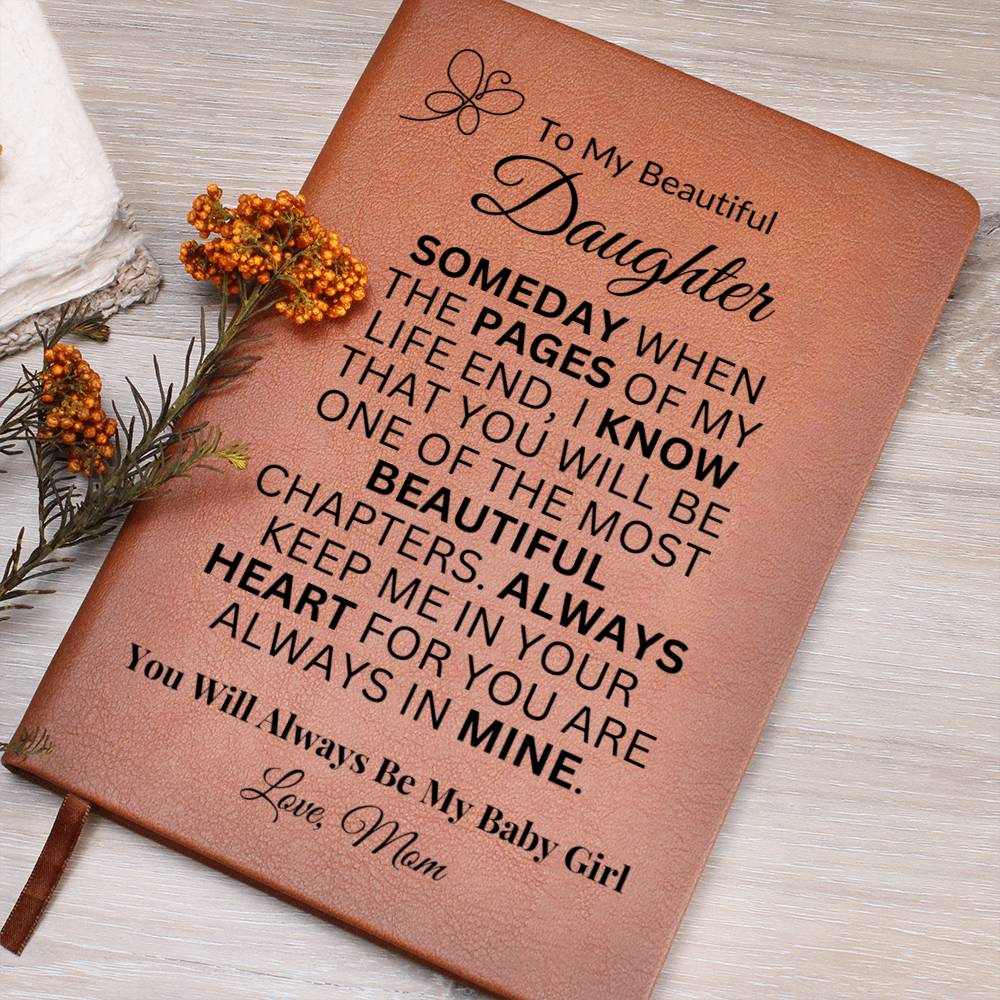 To My Beautiful
Daughter
SOMEDAY WHEN
THE PAGES OF MY
LIFE END, I KNOW
THAT YOU WILL BE
ONE OF THE MOST
BEAUTIFUL
CHAPTERS. ALWAYS
KEEP ME IN YOUR
HEART FOR YOU ARE
ALWAYS IN MINE.
You Will Always Be My Baby Girl
Love, Mom